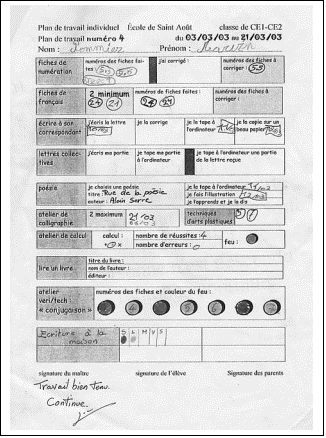 Plan de travail individuel École de Saint Août classe de CE1-CE2
Plan de travail numéro 4 du 03/03/03 au 21/03/03
Nom : Prénom :
fiches de numération
numéros des fiches faites
j'ai corrigé :
numéros des fiches à corriger :
fiches de français
2 minimum
24 21
numéros de fiches faites :
24 24
numéros des fiches à corriger :
écrire à son correspondant
j'écris la lettre
je la corrige
je la tape à l'ordinateur
je la copie sur un beau papier
lettres collectives
j'écris ma partie
je tape ma partie à l'ordinateur
je tape à l'ordinateur une partie de la lettre reçue
poésie
je choisis une poésie
titre : Rue de la poésie
auteur : Alain Serre
je la tape à l'ordinateur
je fais l'illustration
je l'apprends et je la dis
atelier de calligraphie
2 maximum
21/03
techniques d'arts plastiques
atelier de calcul
calcul :
nombre de réussites : 4
nombre d'erreurs : 0
feu :
lire un livre
titre du livre :
nom de l'auteur :
éditeur :
atelier veri/tech : « conjugaison »
numéros des fiches et couleur du feu :
Ecriture à la maison
D L M V S
signature du maître signature de l'élève Signature des parents
Travail bien tenu.
Continue.